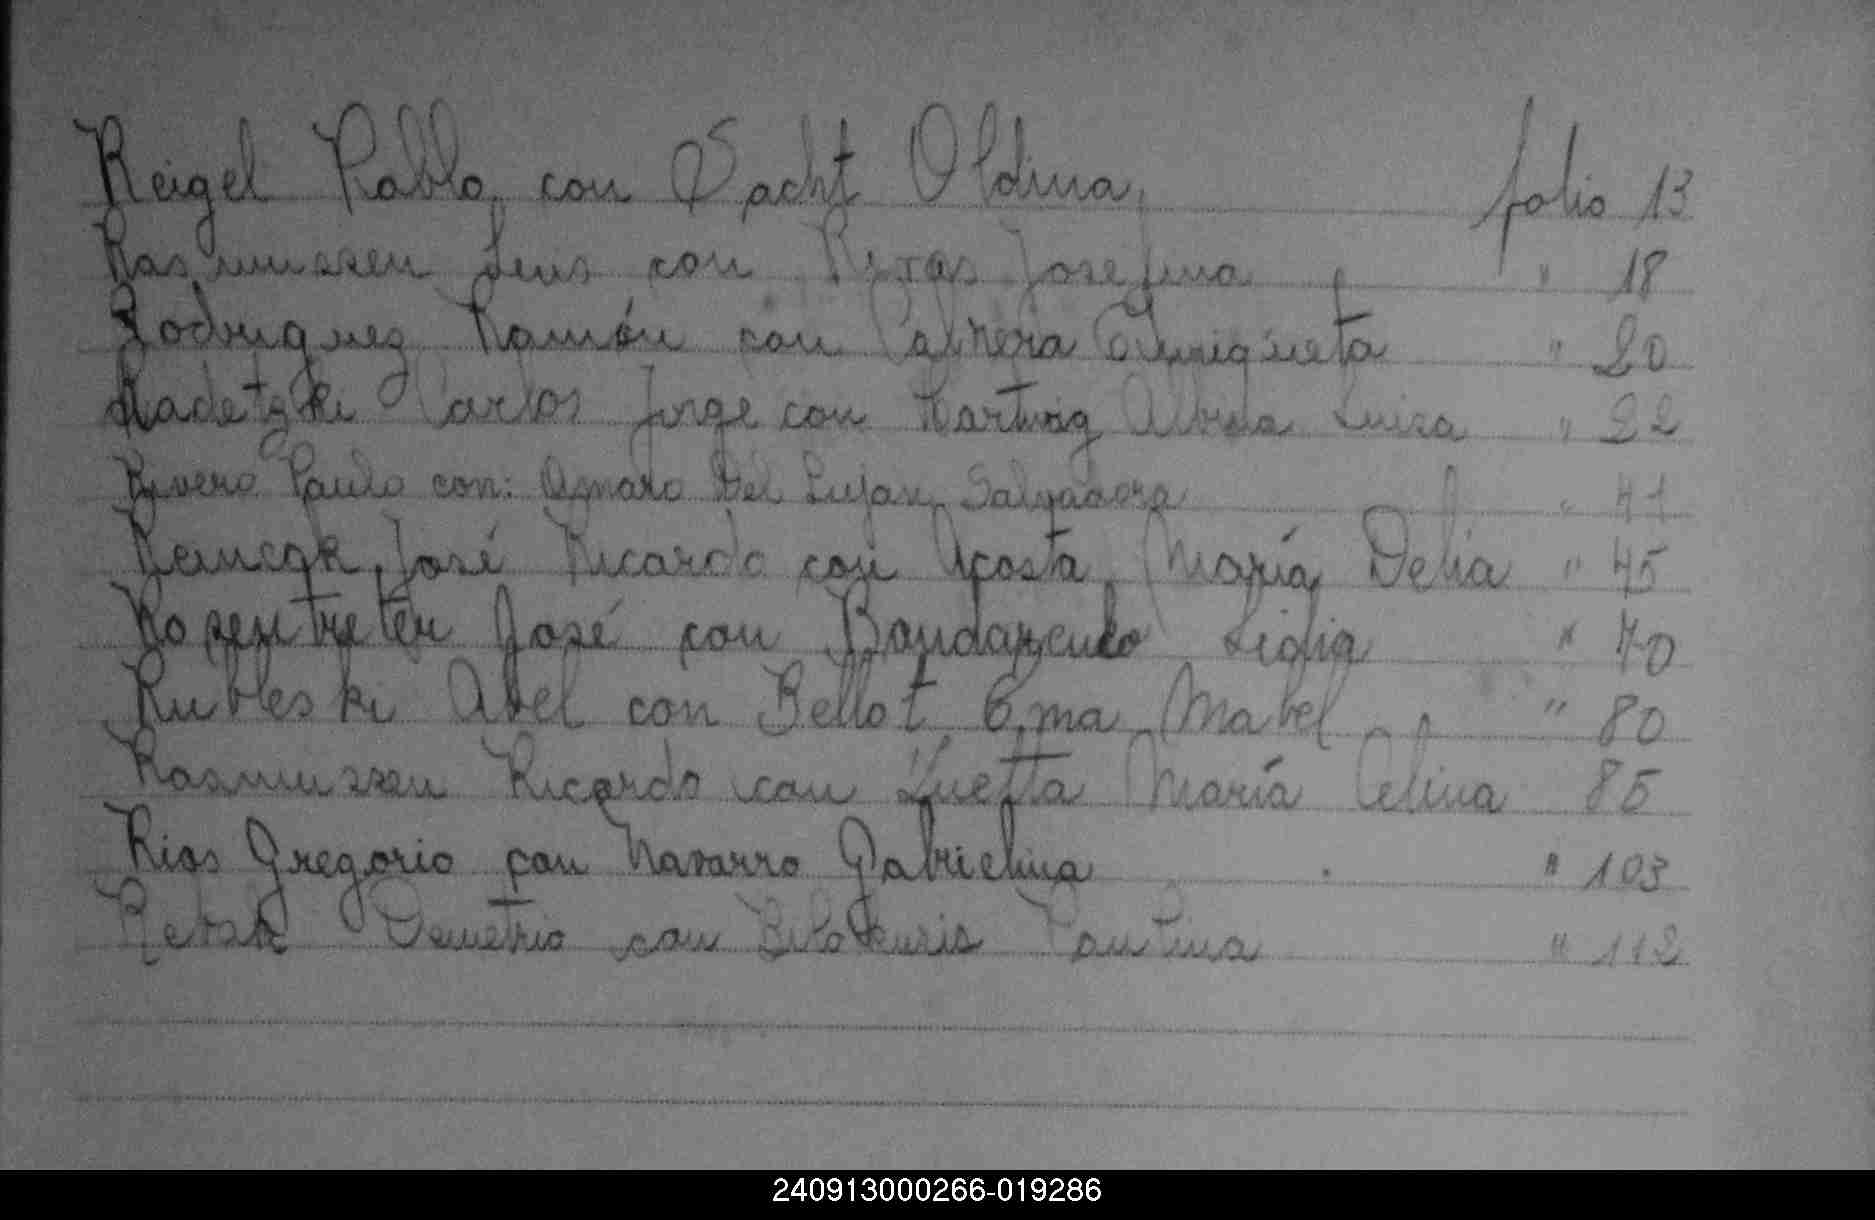 Reigel Pablo, con Wacht Oldina, folio 13
Rasmussen Jens con Rivas Josefina " 18
Rodriguez Ramón con Cabrera Enriqueta " 20
Radetzki Carlos Jorge con Hartwig Albina Luisa " 22
Rivero Paulo con: Del Lujan Salvadora " 41
José Ricardo con Acosta, María Delia " 45
Rosentreter José con Bondarenco Lidia " 70
Rubleski Abel con Bellot Ema Mabel " 80
Rasmussen Ricardo con María Celina 85
Rios Gregorio con Navarro Gabrielina " 103
Demetrio con Paulina " 112
240913000266-019286